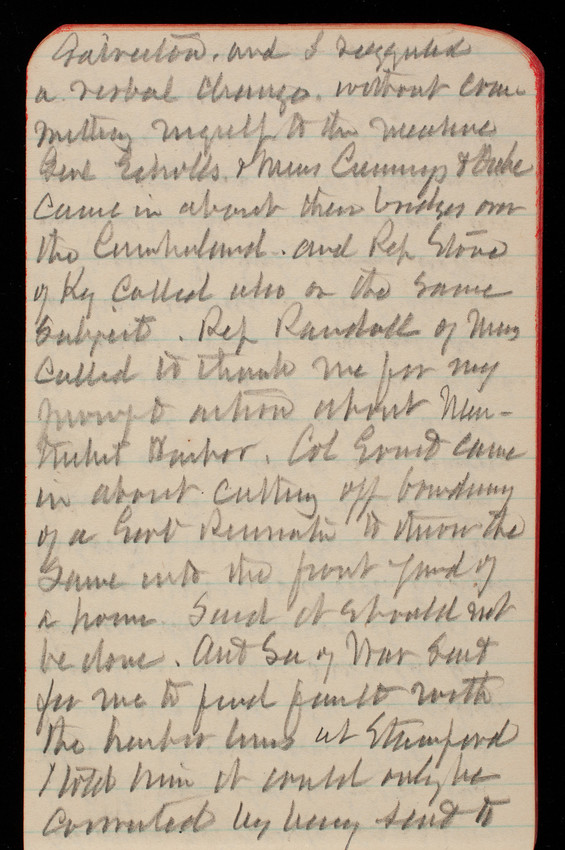 Galveston. and I suggested
a verbal change. without com-
mitting myself to the measure
Genl Echolls & Mess Cummings & Duke
came in about their bridges over
the Cumberland. and Rep Stone
of Ky called also on the same
subject. Rep Randall of Mass
called to thank me for my
prompt action about Nan-
tucket Harbor. Col Ernst came
in about cutting off boundary
of a Govt to throw the
same into the front yard of
a home. Said it should not
be done. Ast Sec of War sent
for me to find fault with
the harbor lines at Stamford
I told him it could only be
corrected by being sent to